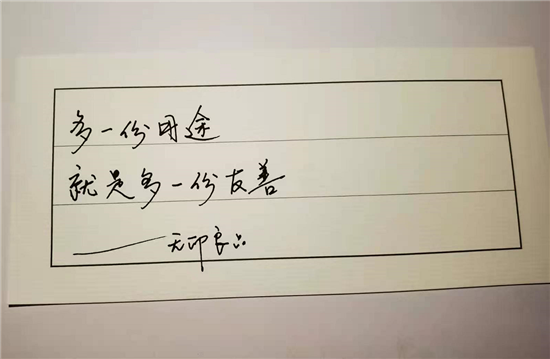 多一份用途
就是多一份友善
——无印良品